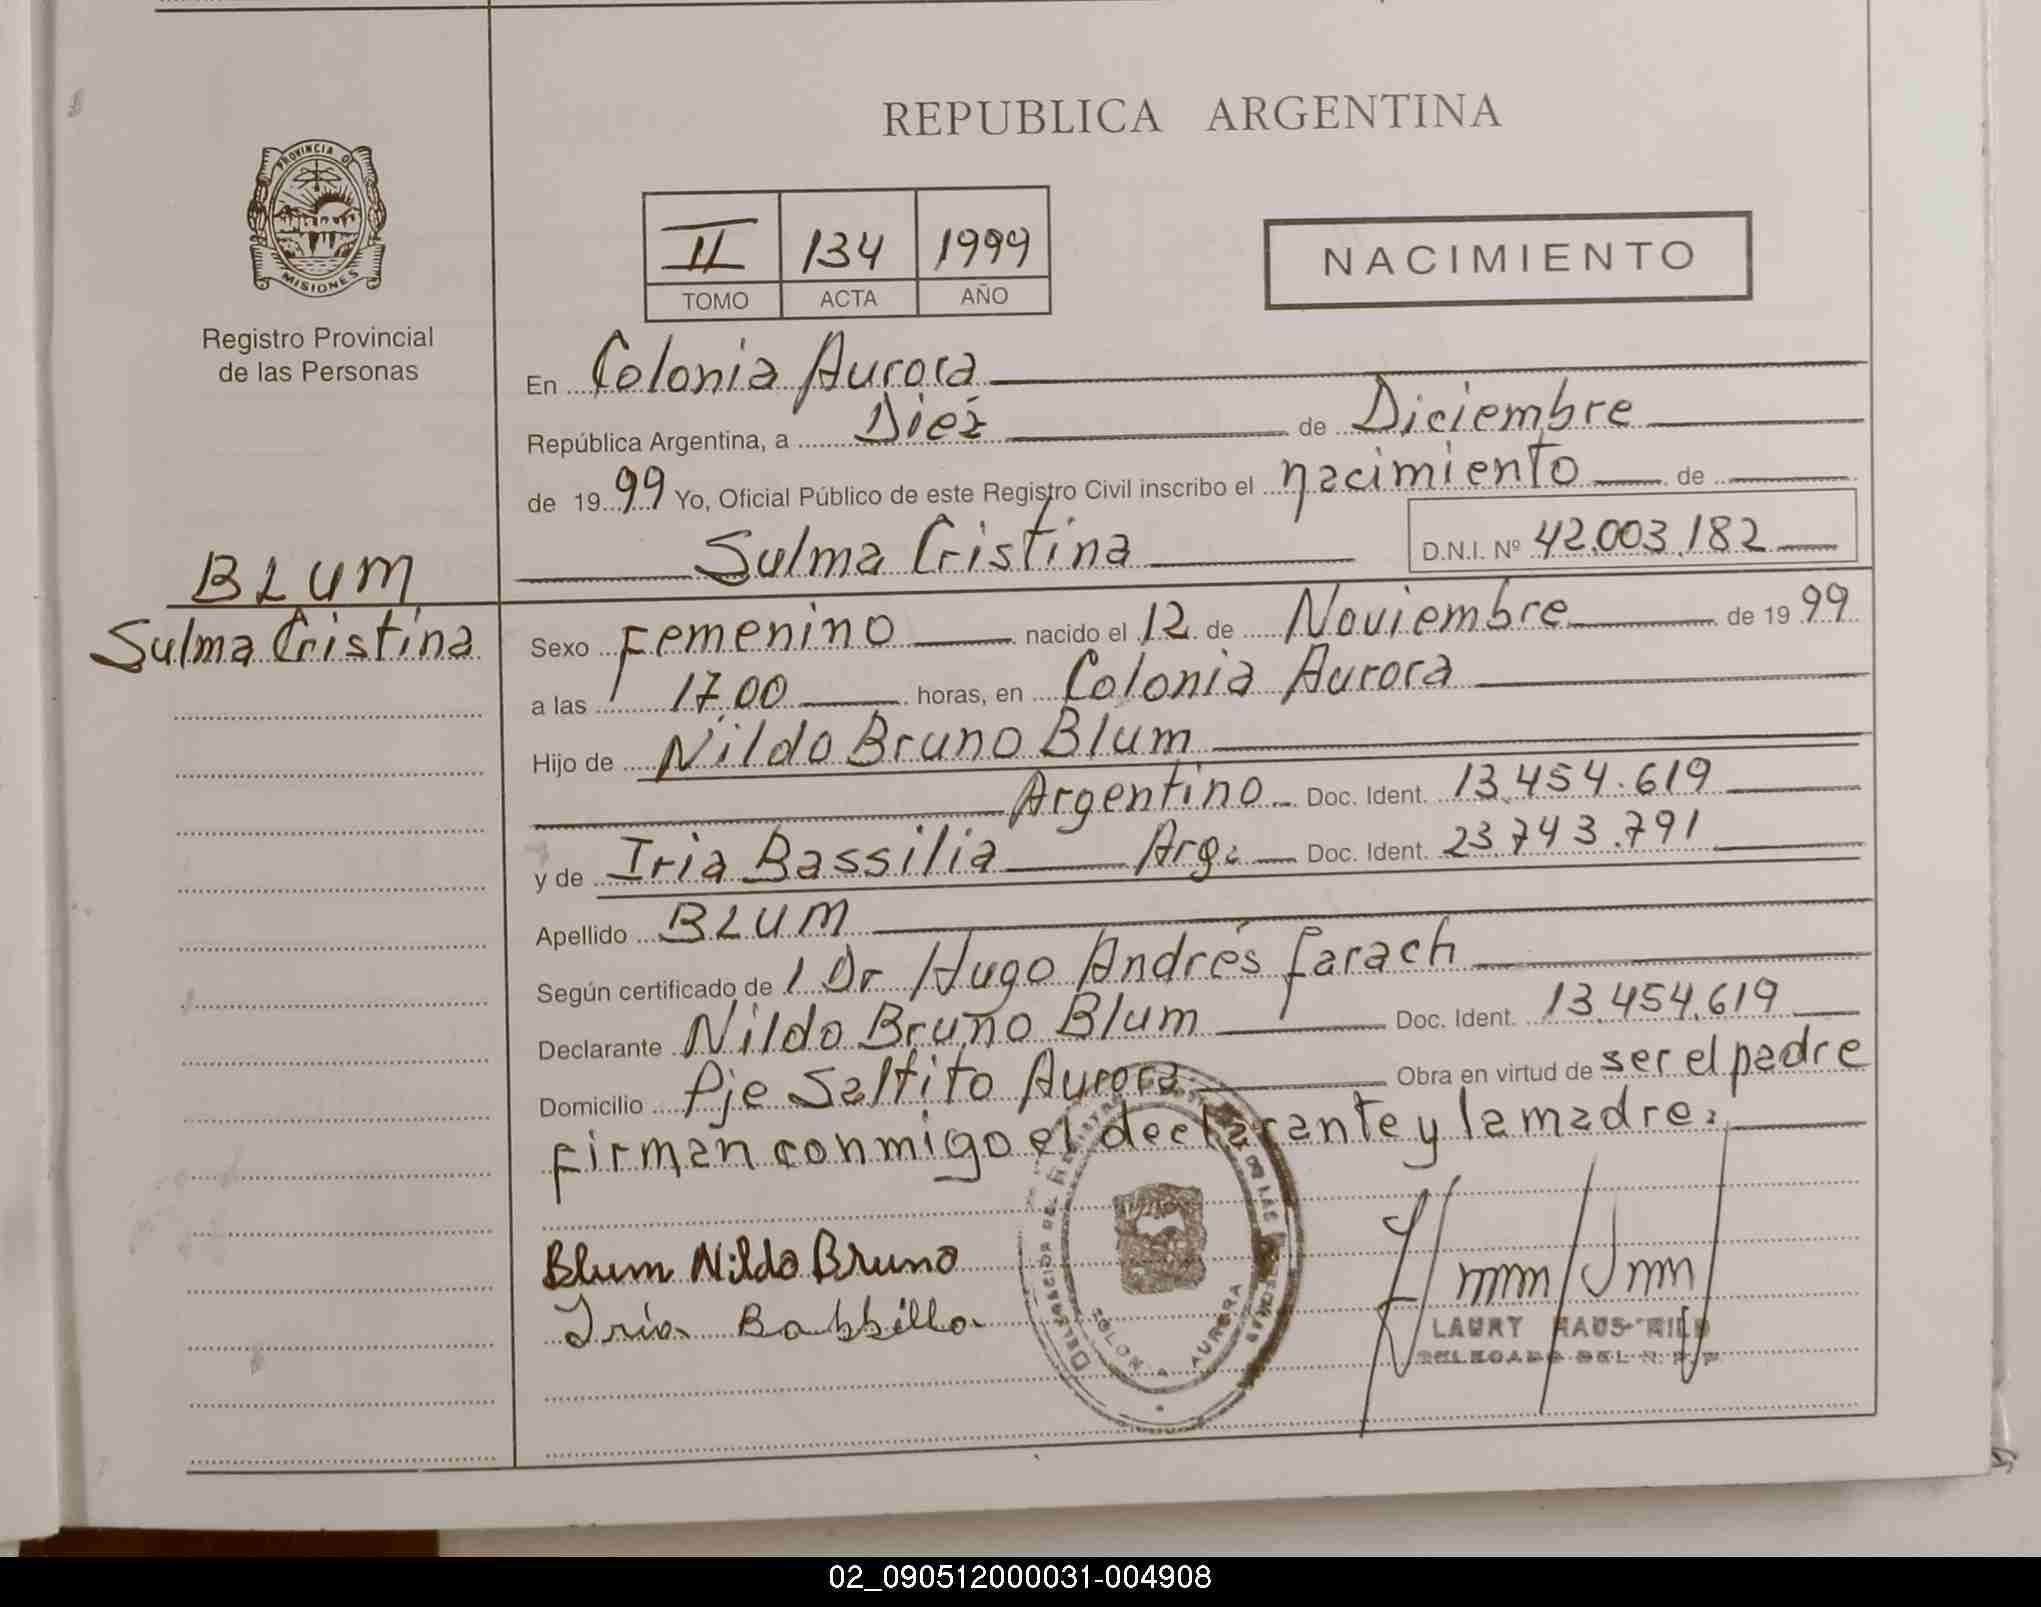 REPUBLICA ARGENTINA
PROVINCIA DE
MISIONES
Registro Provincial
de las Personas
II 134 1999
TOMO ACTA AÑO
NACIMIENTO
En Colonia Aurora
República Argentina, a Diez de Diciembre
de 1999 Yo, Oficial Público de este Registro Civil inscribo el nacimiento de
Sulma Cristina D.N.I. Nº 42.003.182
BLUM
Sulma Cristina
Sexo Femenino nacido el 12 de Noviembre de 1999
a las 17,00 horas, en Colonia Aurora
Hijo de Nildo Bruno Blum
Argentino Doc. Ident. 13.454.619
y de Iria Bassilia Arg. Doc. Ident. 23.743.791
Apellido BLUM
Según certificado de 1 Dr Hugo Andrés Farach
Declarante Nildo Bruno Blum Doc. Ident. 13.454.619
Domicilio Pje Saltito Aurora Obra en virtud de ser el padre
firman conmigo el declarante y la madre.
Blum Nildo Bruno
Iria
DELEGACION DEL REGISTRO DE LAS
COLONIA AURORA
LAURY
DELEGADO DEL R. P. P.
02_090512000031-004908